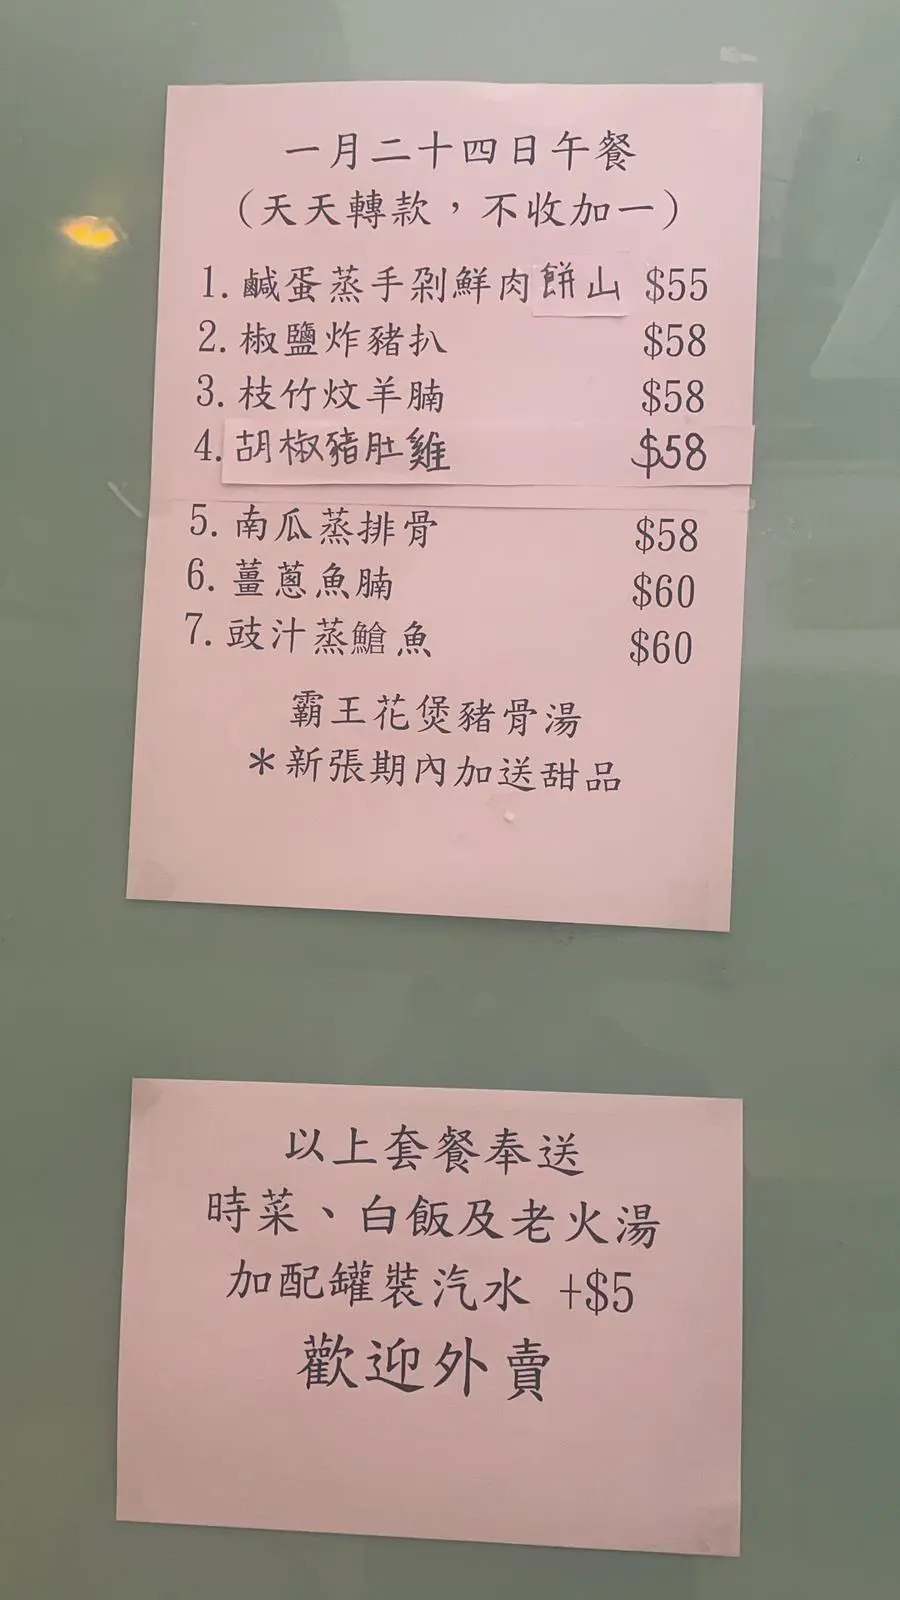 一月二十四日午餐
(天天轉款，不收加一)
1. 鹹蛋蒸手剁鮮肉餅山 $55
2. 椒鹽炸豬扒 $58
3. 枝竹炆羊腩 $58
4. 胡椒豬肚雞 $58
5. 南瓜蒸排骨 $58
6. 薑蔥魚腩 $60
7. 豉汁蒸鯧魚 $60
霸王花煲豬骨湯
＊新張期內加送甜品
以上套餐奉送
時菜、白飯及老火湯
加配罐裝汽水 +$5
歡迎外賣